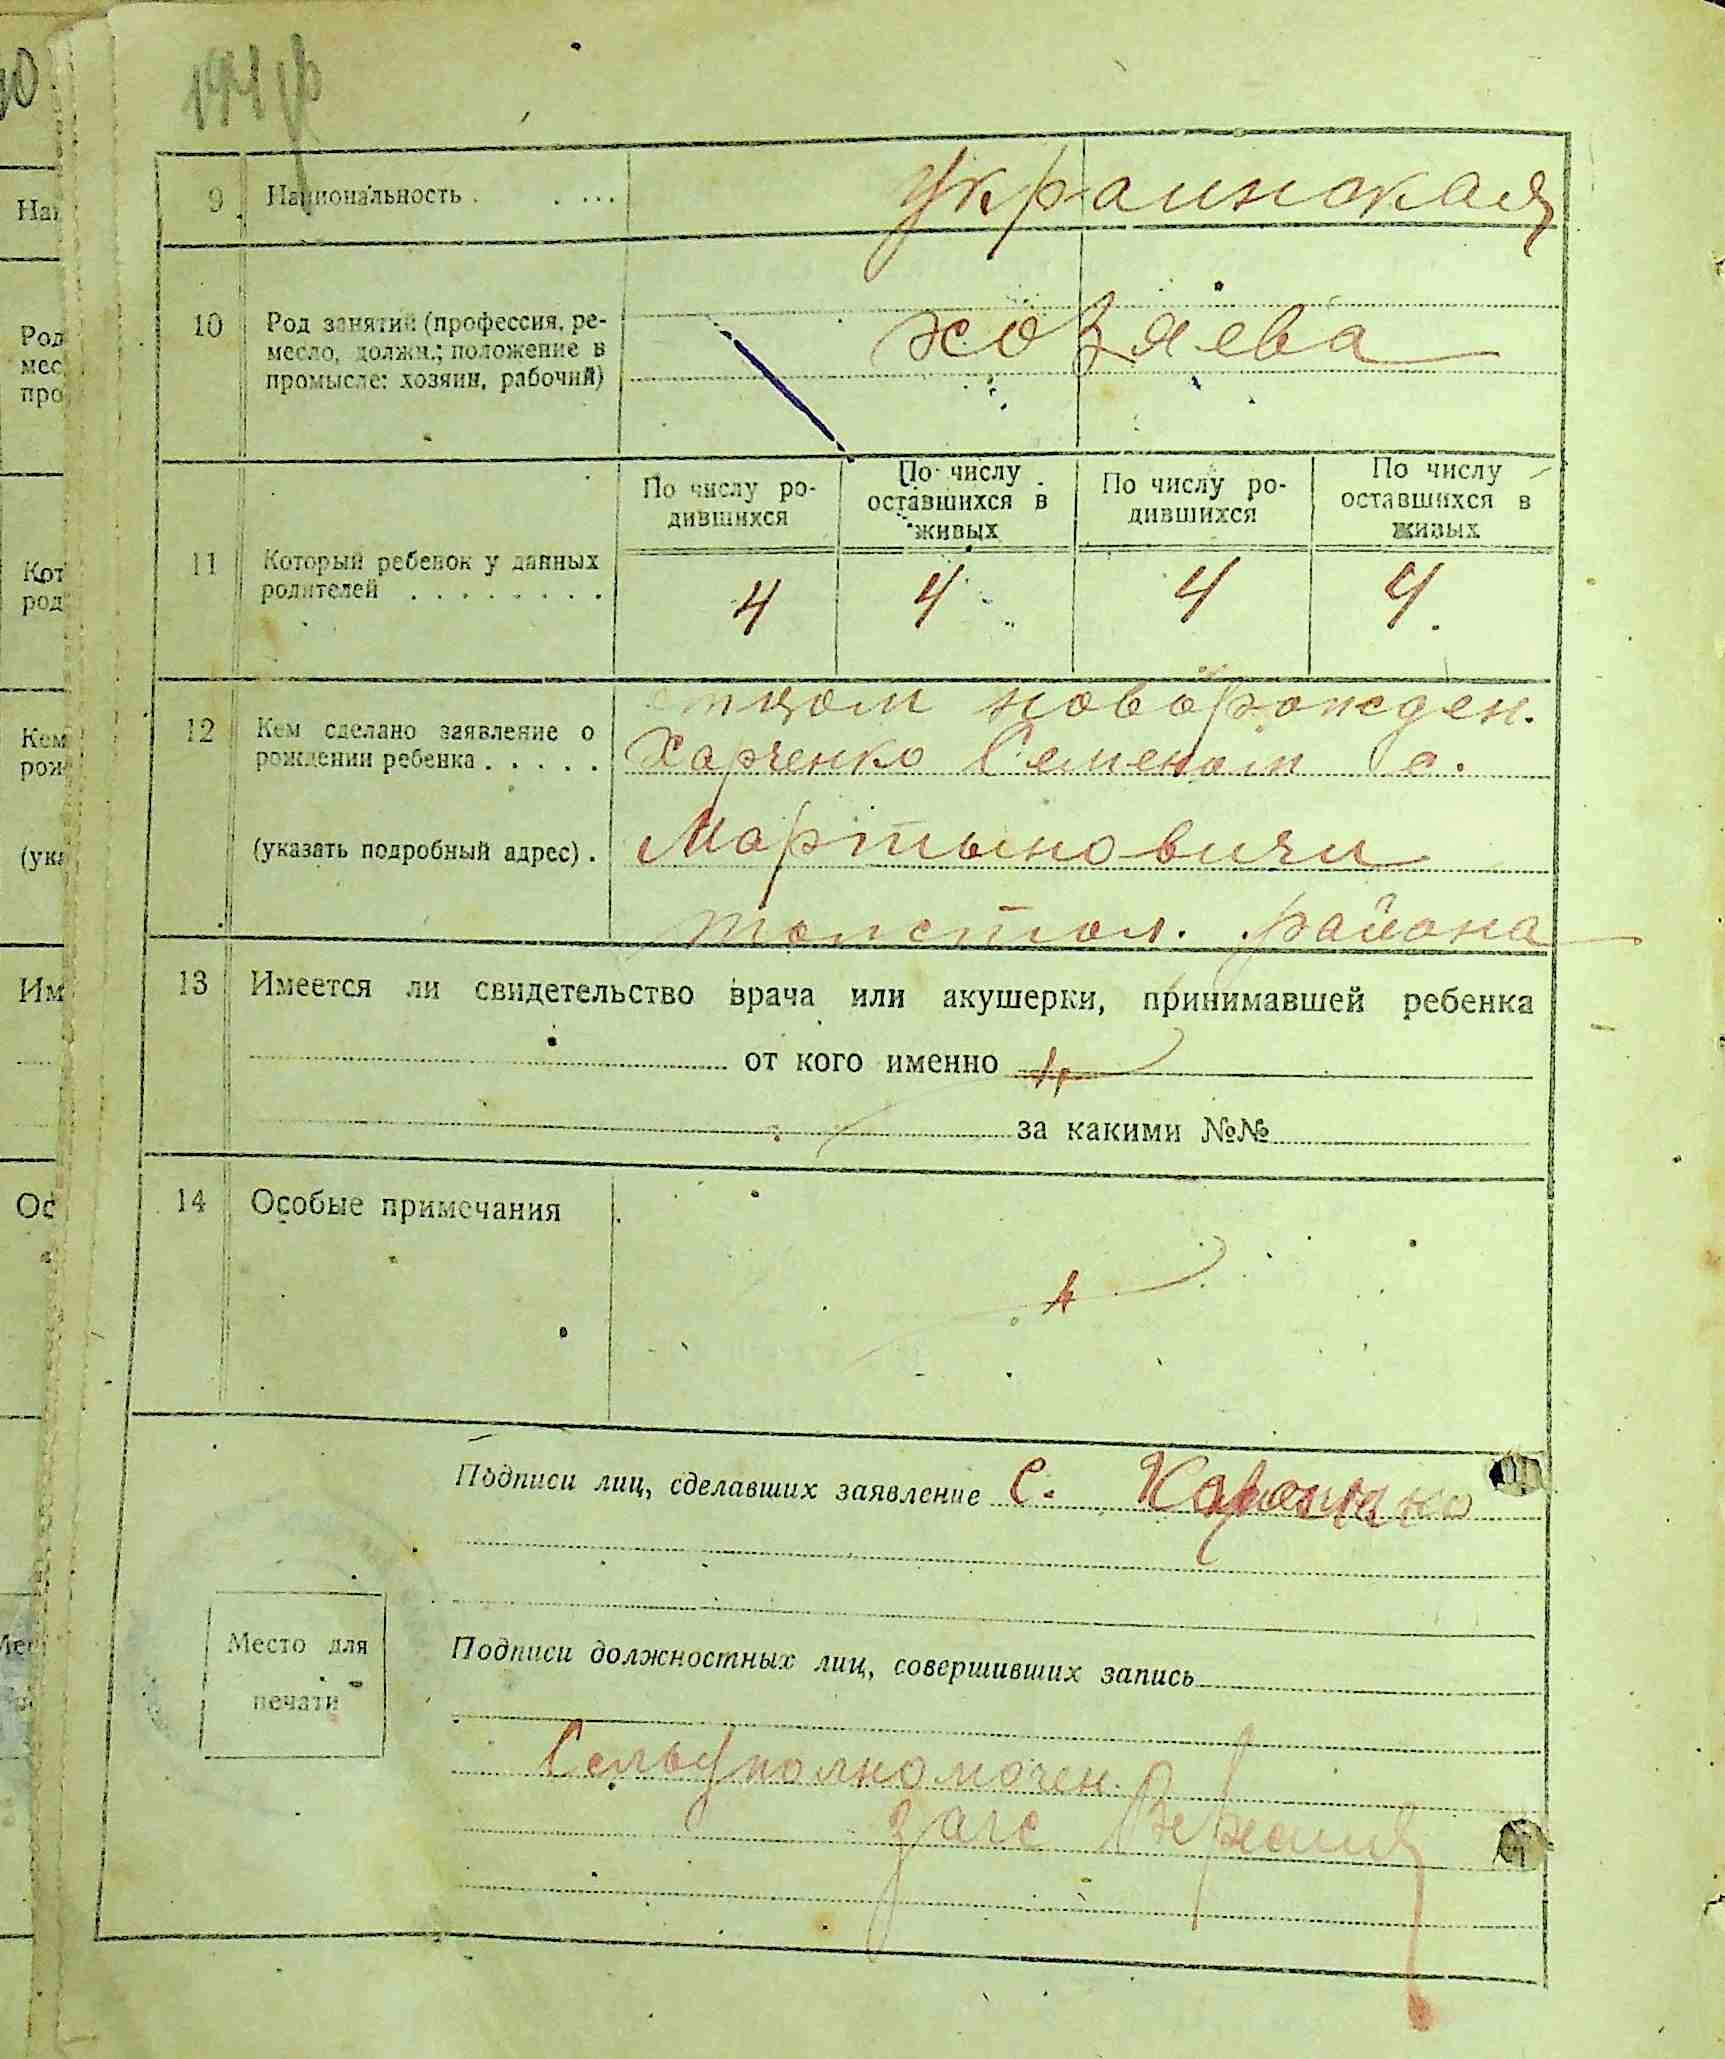 9 Национальность . . ... украинская
10 Род занятий (профессия, ре-
месло, должн.; положение в
промысле: хозяин, рабочий)
хозяева
По числу ро-
дившихся
По числу
оставшихся в
живых
По числу ро-
дившихся
По числу
оставшихся в
живых
11 Который ребенок у данных
родителей . . . . . . . .
4 4 4 4
12 Кем сделано заявление о
рождении ребенка . . . . .
(указать подробный адрес) .
отцом новорожден.
Харченко Семеном с.
Мартыновичи
района
13 Имеется ли свидетельство врача или акушерки, принимавшей ребенка
от кого именно
за какими №№
14 Особые примечания
Подписи лиц, сделавших заявление С. Харченко
Подписи должностных лиц, совершивших запись
Место для
печати
Сельуполномочен.
загс